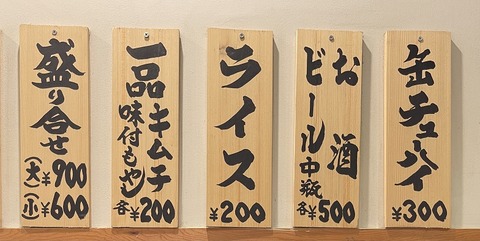 盛り合せ
(大)¥900
(小)¥600
一品キムチ
味付もやし
各¥200
ライス
¥200
お酒
ビール中瓶
各¥500
缶チューハイ
¥300